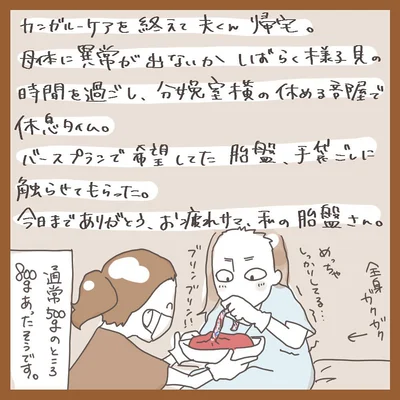 カンガルーケアを終えて夫くん帰宅。
母体に異常が出ないかしばらく様子見の
時間を過ごし、分娩室横の休める部屋で
休息タイム。
バースプランで希望してた胎盤、手袋ごしに
触らせてもらった。
今日までありがとう、お疲れサマ、私の胎盤さん。
めっちゃ
しっかりしてる…
ブリンブリン!!
全身
ガクガク
通常500gのところ
800gあったそうです。